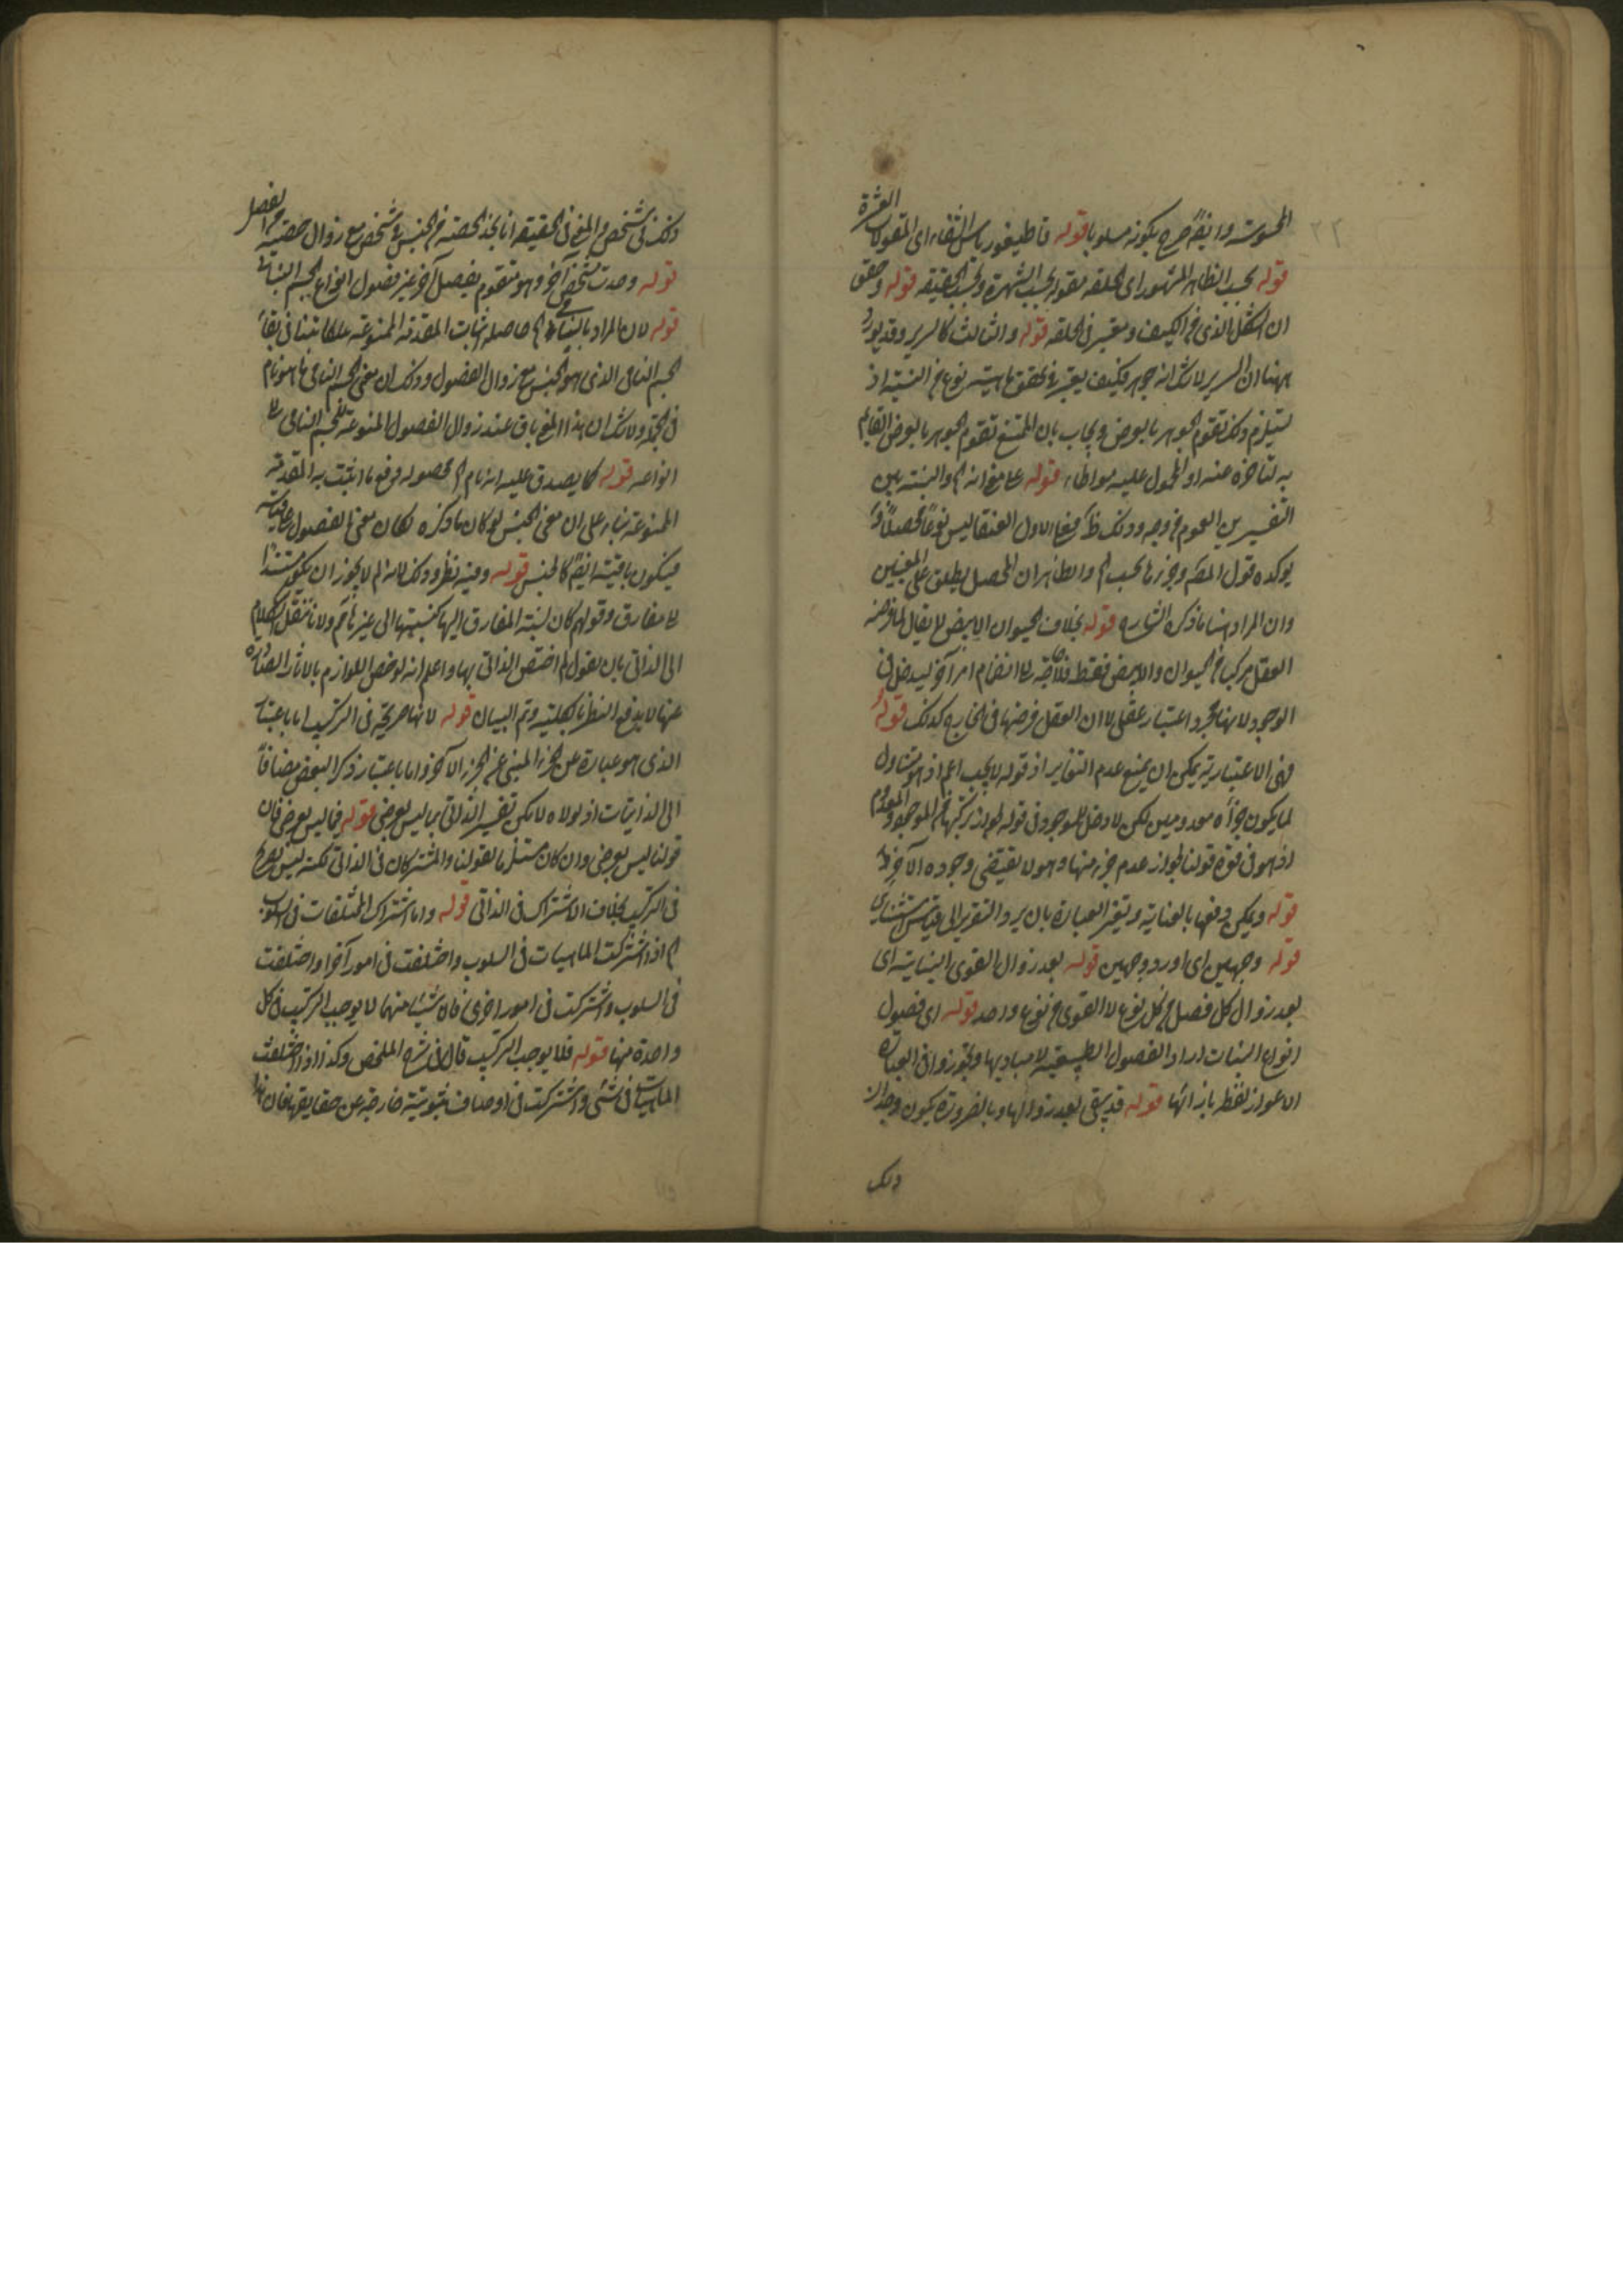 المحسوسة وايضا صرح بكونه مسلوبا قوله قاطيغورياس الشفاء اى المقولات العشرة
قوله بحسب الظاهر المشهور اى الحلقه مقولة بحسب الشهرة وبحسب الحقيقه قوله وحقق
ان الشكل الذى من الكيف ويعتبر فى الحلقه قوله والثالث كالسرير وقد يورد
ههنا ان السرير لا شك انه جوهر فكيف يعتبر فى تحقق ماهيته نوع من النسبة اذ
يستلزم ذلك تقوم الجوهر بالعرض ويجاب بان الممتنع تقوم الجوهر بالعرض القايم
به لتاخره عنه او المحمول عليه مواطاء قوله على مع انه الخ والنسبة بين
التفسيرين العموم من وجه وذلك ظ فمع الاول العنقا ليس نوعا محصلا
يوكده قول المصـ وجوزها بحسب الخ والظاهر ان المحصل يطلق على المعنيين
وان المراد هنا ما ذكره الشارح قوله بخلاف الحيوان الابيض لا يقال
العقل مركبا من الحيوان والابيض فقط فلا حاجة الى انضمام امر آخر ليدخل فى
الوجود لانها مجرد اعتبار عقلى لا ان العقل فرضها فى الخارج كذلك قوله
فهى الاعتبارية يمكن ان يمنع عدم التغاير اذ قوله لا يجب اعم اذ هو يتناول
لما يكون جزأه معدومين لكن لا دخل للموجود فى قوله لجواز تركبها من الموجود والمعدوم
اذ هو فى قوة قولنا لجواز عدم جزء منها وهو لا يقتضى وجوده الآخر
قوله ويمكن دفعها بالعناية وتغير العبارة بان يرد التقرير الى قياس استثنائى
قوله وجهين اى اورد وجهين قوله بعد زوال القوى النباتية اى
بعد زوال كل فصل من كل نوع لا القوى من نوع واحد قوله اى فصول
انواع النبات اراد الفصول الطبيعية لا مباديها وتجوز فى العبارة
لاعواز لفظ بازائها قوله قد يبقى بعد زوالها وبالضرورة يكون
ذلك
ذلك فى شخص والمعنى فى الحقيقة انا نجد الحصة من الجنس فى شخص مع زوال حصة من الفصل
قوله وحدث شخص آخر وهو متقوم بفصل آخر غير فصول انواع الجسم النباتى
قوله لان المراد بالنباتى الخ حاصله اثبات المقدمة الممنوعة
الجسم النامى الذى هو الجنس مع زوال الفصول وذلك ان معنى الجسم النامى ما هو نام
فى الجملة ولا شك ان هذا المعنى باق عند زوال الفصول المنوعة للجسم النامى
انواعه قوله كما يصدق عليه انه نام الخ محصوله دفع ما اثبت به المقدمة
الممنوعة بناء على ان معنى الجنس لو كان ما ذكره لكان معنى الفصول
فيكون باقية ايضا كالجنس قوله وفيه نظر وذلك لانه لم لا يجوز ان يكون مستندا
الى مفارق وقولهم كان نسبة المفارق اليها كنسبتها الى غيرها ولا ننقل الكلام
الى الذاتى بان نقول لم اختص الذاتى بها واعلم انه لو خص اللوازم بالاثار الصادرة
عنها لا يدفع النظر بالكلية وتم البيان قوله لانها صريحة فى التركيب اما باعتبار
الذى هو عبارة عن الجزء المنبئ عن الجزء الآخر واما باعتبار ذكر البعض مضافا
الى الذاتيات اذ لولاه لا يمكن تفسير الذاتى بما ليس بعرضى قوله فما ليس بعرضى فان
قولنا ليس بعرضى وان كان مستلزما لقولنا والمشتركان فى الذاتى لكنه ليس بصريح
فى التركيب بخلاف الاشتراك فى الذاتى قوله واما اشتراك المختلفات فى السلوب
الخ اذا اشتركت الماهيات فى السلوب واختلفت فى امور آخر او اختلفت
فى السلوب واشتركت فى امور اخرى فان شيئا منهما لا يوجب التركيب فى كل
واحدة منها قوله فلا يوجب التركيب قال فى شرح الملخص وكذا اذا اختلفت
الماهيات فى شئ واشتركت فى اوصاف ثبوتية خارجة عن حقايقها فان